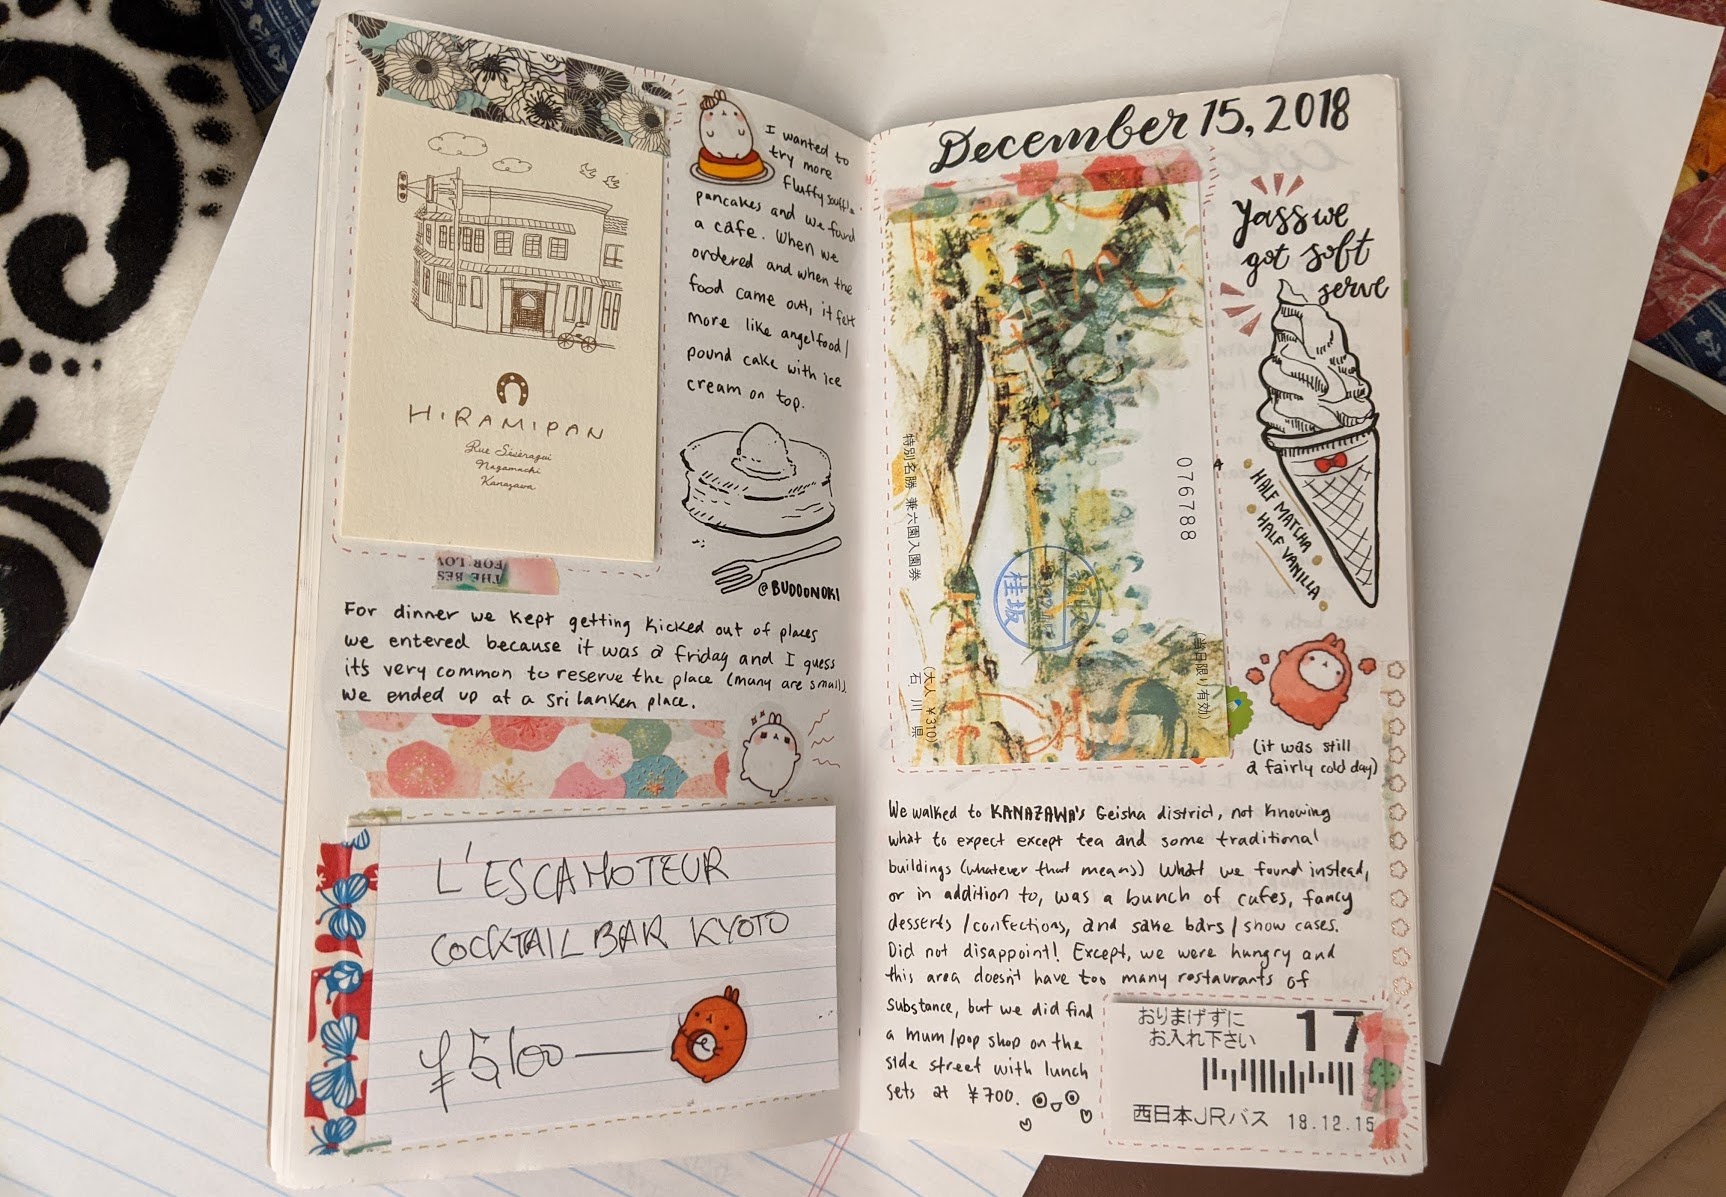 HIRAMIPAN
Rue Seseragui
Nagamachi
Kanazawa
I wanted to
try more
fluffy soufflé
pancakes and we found
a cafe. When we
ordered and when the
food came out, it felt
more like angelfood/
pound cake with ice
cream on top.
@BUDOONOKI
THE BES
FOR LOV
For dinner we kept getting kicked out of places
we entered because it was a friday and I guess
it's very common to reserve the place (many are small).
We ended up at a Sri lanken place.
L'ESCAMOTEUR
COCKTAIL BAR KYOTO
¥5,100
December 15, 2018
Yass we
got soft
serve
HALF MATCHA
HALF VANILLA
特別名勝 兼六園入園券
076788
桂坂
(当日限り有効)
(大人 ¥310)
石川県
(it was still
a fairly cold day)
We walked to KANAZAWA's Geisha district, not knowing
what to expect except tea and some traditional
buildings (whatever that means) What we found instead,
or in addition to, was a bunch of cafes, fancy
desserts/confections, and sake bars/show cases.
Did not disappoint! Except, we were hungry and
this area doesn't have too many restaurants of
substance, but we did find
a mum/pop shop on the
side street with lunch
sets at ¥700.
おりまげずに
お入れ下さい
17
西日本JRバス 18.12.15